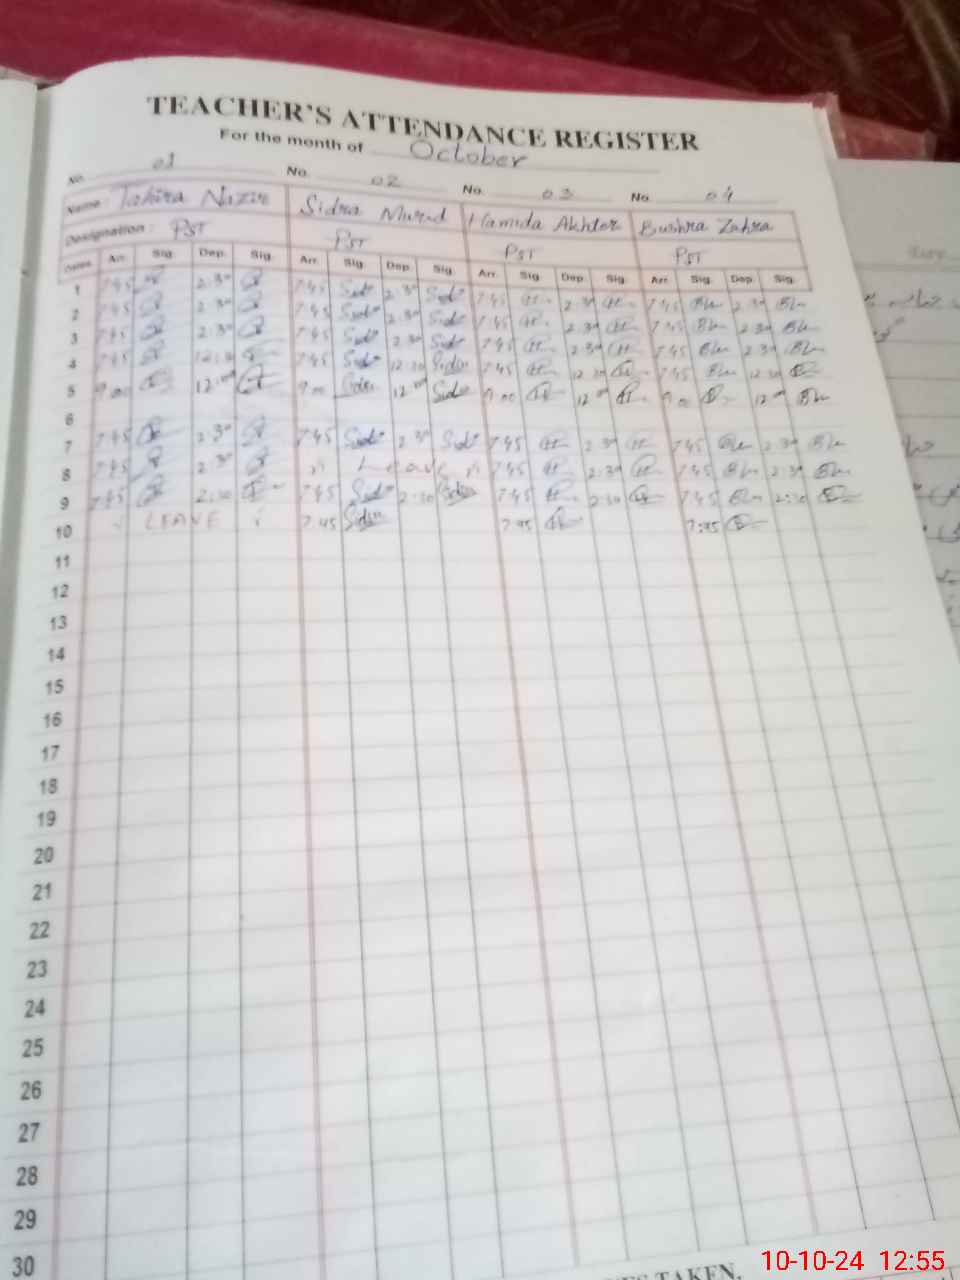 TEACHER'S ATTENDANCE REGISTER
For the month of October
No. 01 No. 02 No. 03 No. 04
Name: Tahira Nazir Sidra Murad Hamida Akhter Bushra Zahra
Designation: PST PST PST PST
Dates Arr. Sig. Dep. Sig. Arr. Sig. Dep. Sig. Arr. Sig. Dep. Sig. Arr. Sig. Dep. Sig.
1 7 45 2 30 7 45 2 30 7 45 2 30 7 45 2 30
2 7 45 2 30 7 45 2 30 7 45 2 30 7 45 2 30
3 7 45 2 30 7 45 2 30 7 45 2 30 7 45 2 30
4 7 45 12:30 7 45 12:30 7 45 12 30 7 45 12 30
5 9 00 12 00 9 00 12 00 9 00 12 00 9 00 12 00
6
7 7 45 2 30 7 45 2 30 7 45 2 30 7 45 2 30
8 7 45 2 30 Leave 7 45 2:30 7 45 2:30
9 7 45 2:30 7 45 2:30 7 45 2:30 7 45 2:30
10 LEAVE 7:45 7:45 7:45
11
12
13
14
15
16
17
18
19
20
21
22
23
24
25
26
27
28
29
30
TAKEN.
10-10-24 12:55